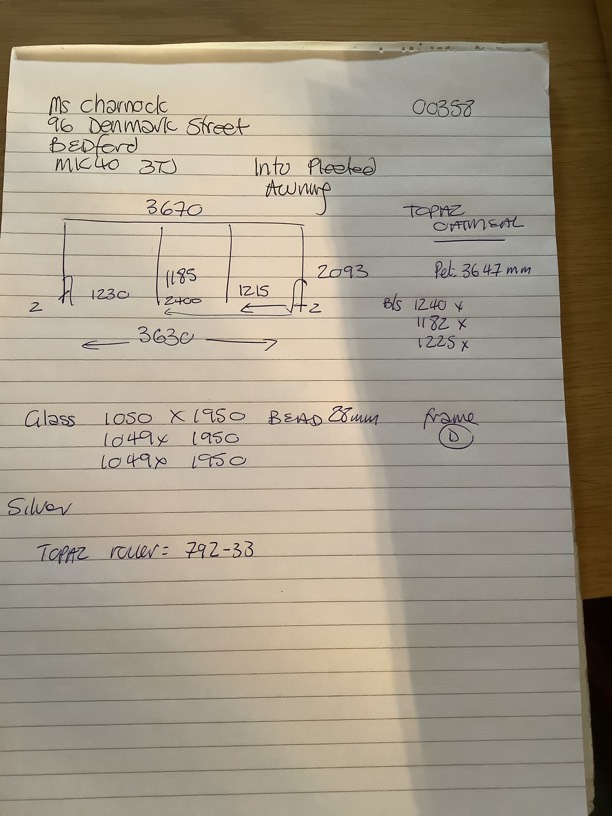 Ms Charnock
00358
96 Denmark Street
BEDford
MK40 3TJ
Into Pleated
Awning
3670
TOPAZ
OATMEAL
2093
Pel: 3647 mm
1185
1230
2400
1215
2
2
B/s 1240 x
1182 x
1225 x
3630
Glass 1050 X 1950 BEAD 28mm
frame
1049 x 1950
D
1049 x 1950
Silver
TOPAZ roller = 792-33